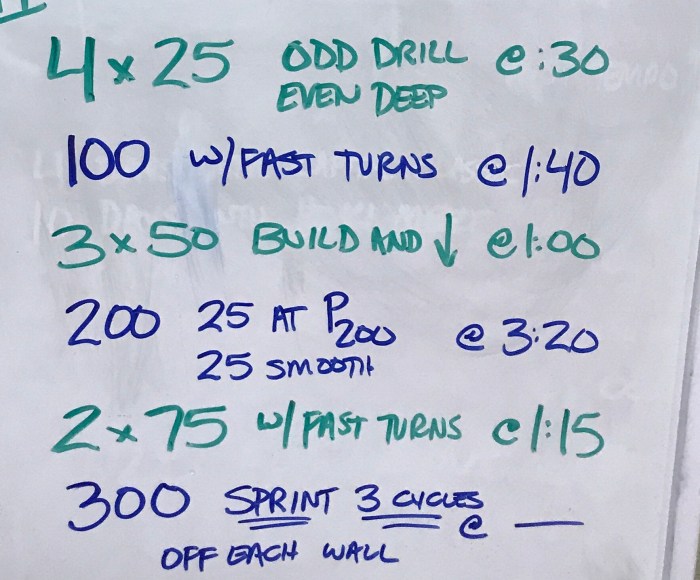 4 x 25 ODD DRILL @ :30
EVEN DEEP
100 w/ FAST TURNS @ 1:40
3 x 50 BUILD AND ↓ @ 1:00
200 25 AT P200 @ 3:20
25 SMOOTH
2 x 75 w/ FAST TURNS @ 1:15
300 SPRINT 3 CYCLES @ __
OFF EACH WALL